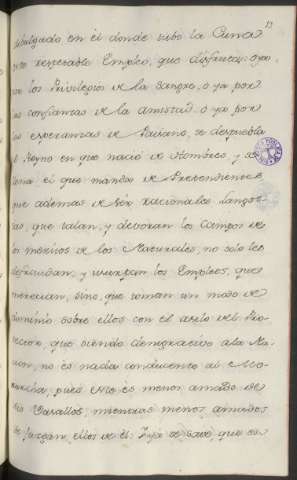 13
en él donde tubo la Cuna
este respetable Empleo, que disfruta: o ya
por los Privilegios de la Sangre, ó ya por
las confianzas de la amistad, ó ya por
las esperanzas de Paisano, se despuebla
el Reyno en que nació de Hombres, y se
llena el que manda de Pretendientes
que ademas de ser racionales Langos-
tas, que talan, y devoran los Campos de
los meritos de los Naturales, no solo les
defraudan, y usurpan los Empleos, que
merecian, sino, que toman un modo de
dominio sobre ellos con el asilo del Pro-
tector, que siendo denigrativo a la Na-
cion, no es nada conducente al Mo-
narca, pues este es menos amado de
sus Vasallos, mientras menos amados
se juzgan, ellos de él: que es